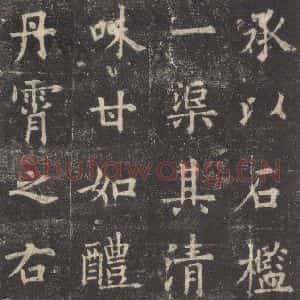 承以石檻
一渠其清
味甘如醴
丹霄之右
Shufawang.CN